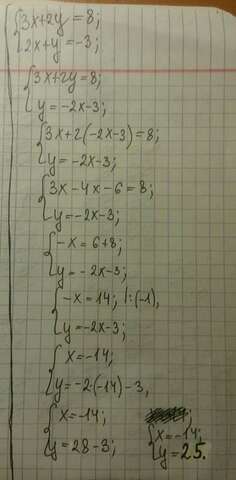 3x+2y=8;
2x+y=-3;
3x+2y=8;
y=-2x-3;
3x+2(-2x-3)=8;
y=-2x-3;
3x-4x-6=8;
y=-2x-3;
-x=6+8;
y=-2x-3;
-x=14; |:(-1),
y=-2x-3;
x=-14;
y=-2·(-14)-3,
x=-14;
y=28-3;
x=-14;
y=25.